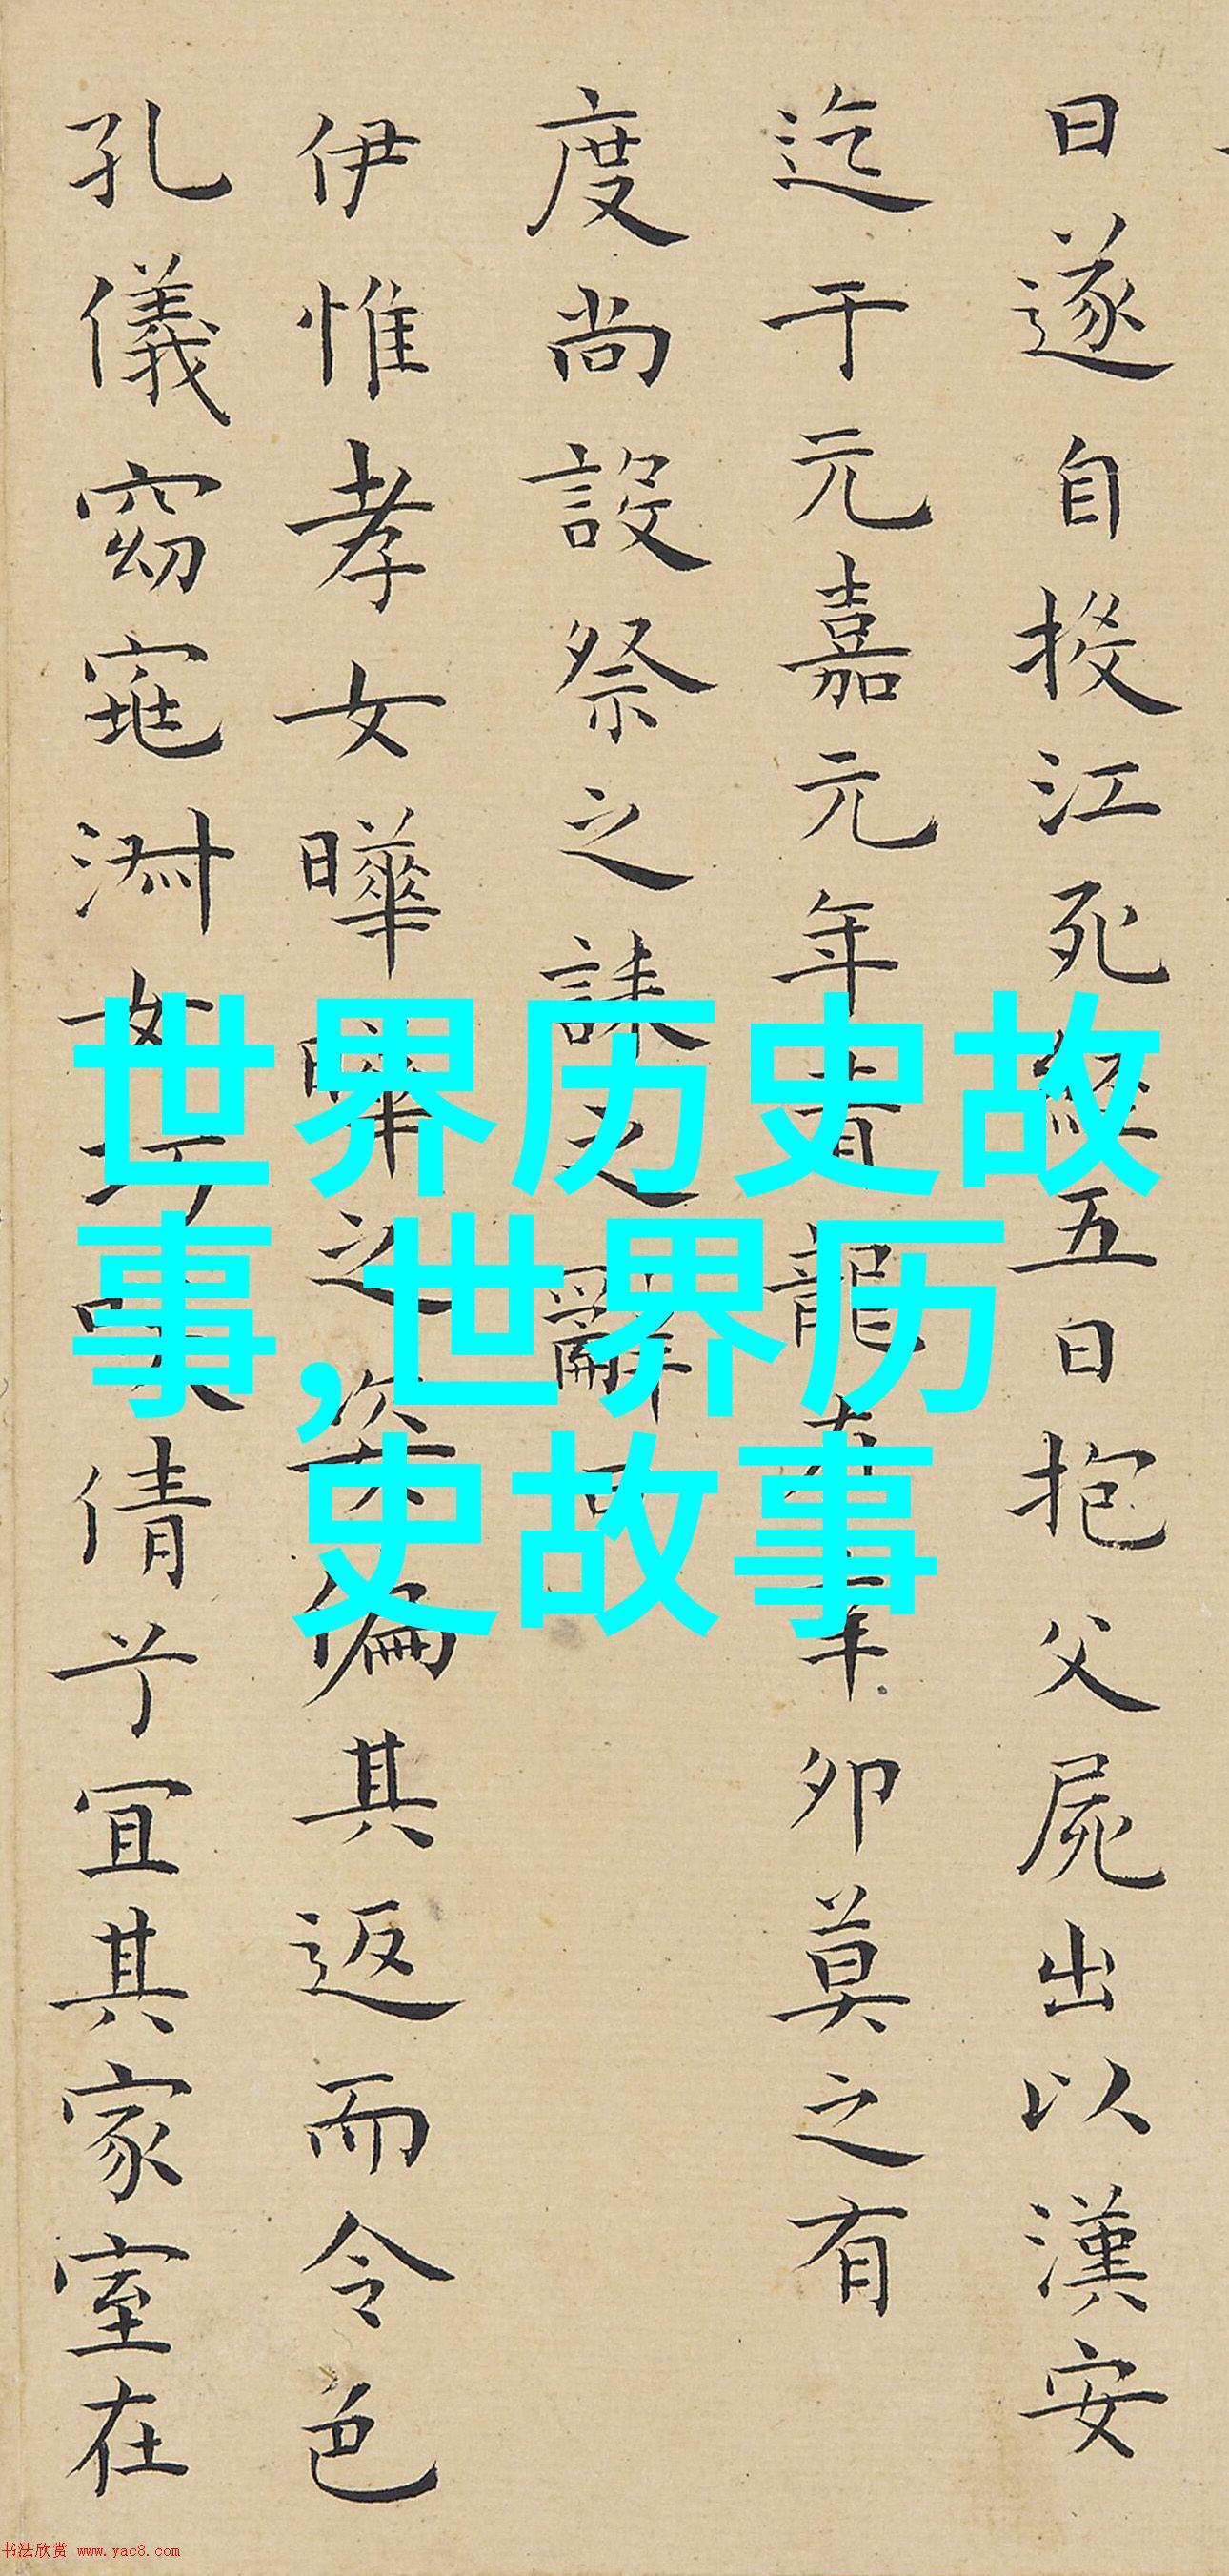 曰遂自投江死經五日抱父屍出以漢安
迄于元嘉元年青龍在辛卯莫之有
度尚設祭之誄之辭曰
伊惟孝女曄曄之姿偏其返而令色
孔儀窈窕淑女巧笑倩兮宜其家室在
世界历史故
事,世界历
史故事
书法欣赏 www.yac8.com